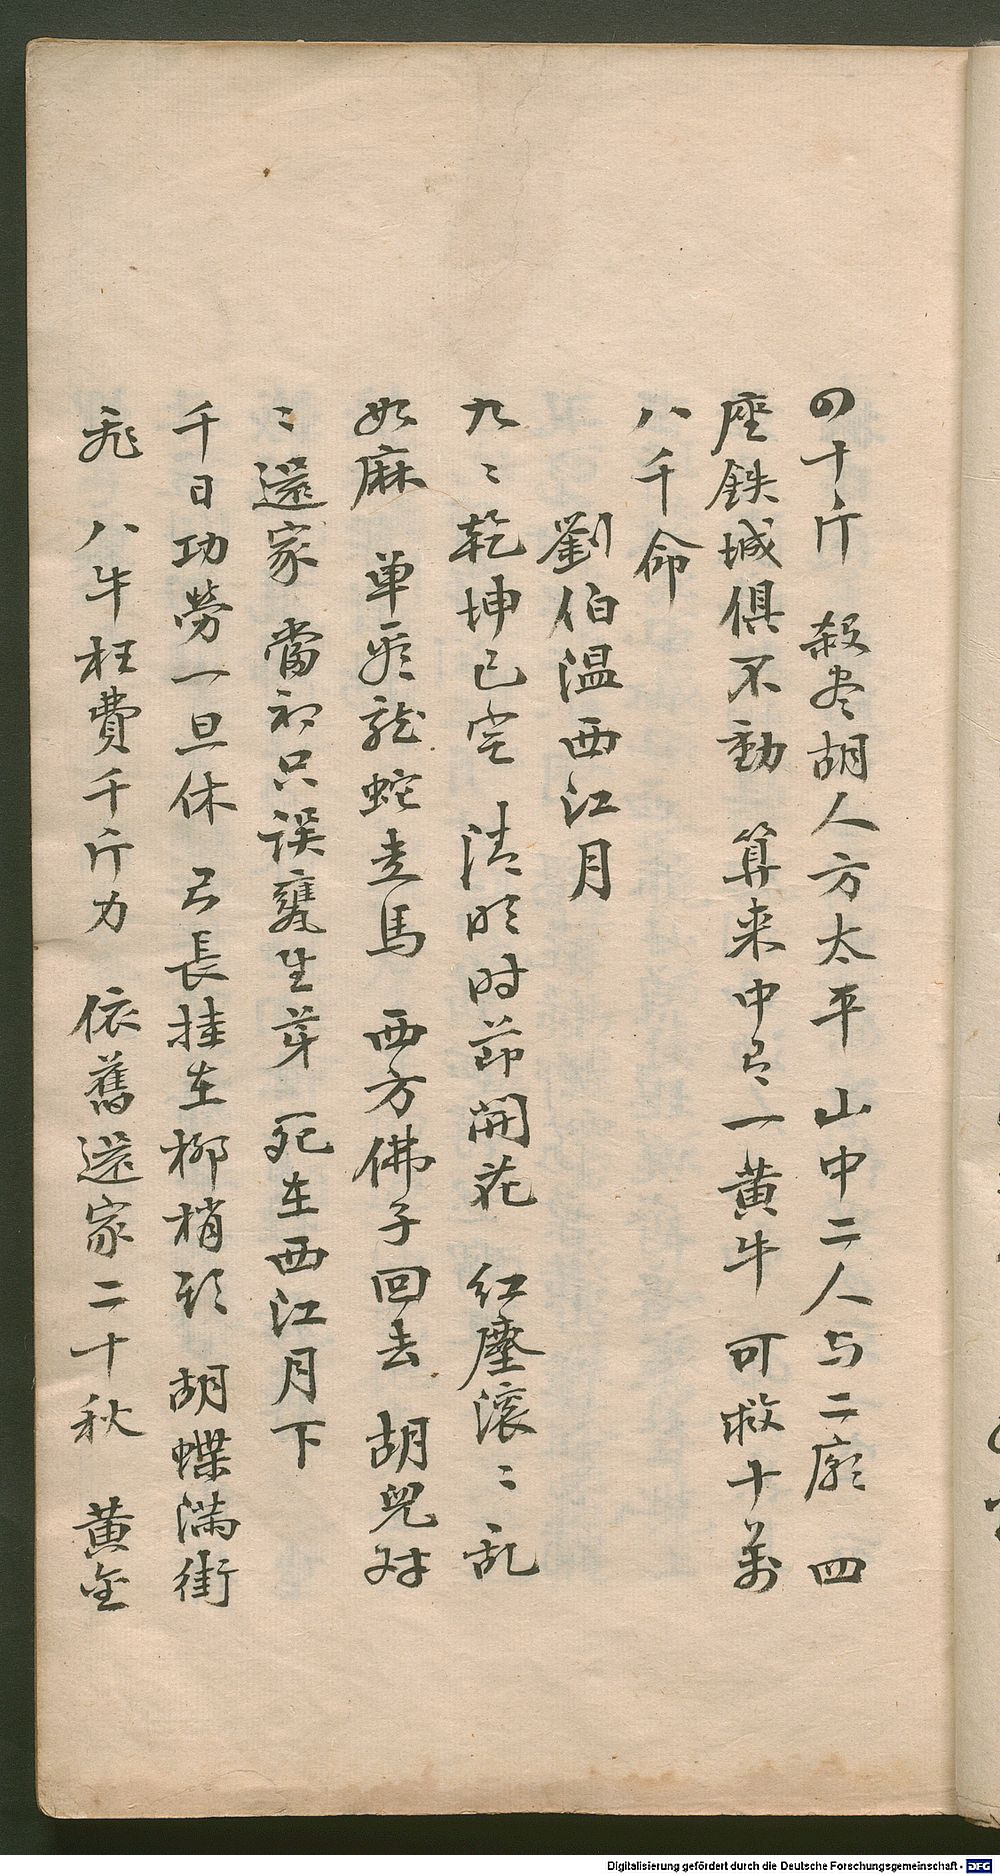 四十斤 殺尽胡人方太平 山中二人与二廍 四
座鉄城俱不動 算来中有一黄牛 可救十萬
八千命
劉伯温西江月
九〻乾坤已定 清明时節開花 红塵滚〻乱
如麻 单系龍蛇走馬 西方佛子回去 胡兒对
〻還家 當初只误甕生芽 死在西江月下
千日功勞一旦休 弓長挂在柳梢頭 胡蝶满街
飛 八牛枉費千斤力 依舊還家二十秋 黄金
Digitalisierung gefördert durch die Deutsche Forschungsgemeinschaft - DFG